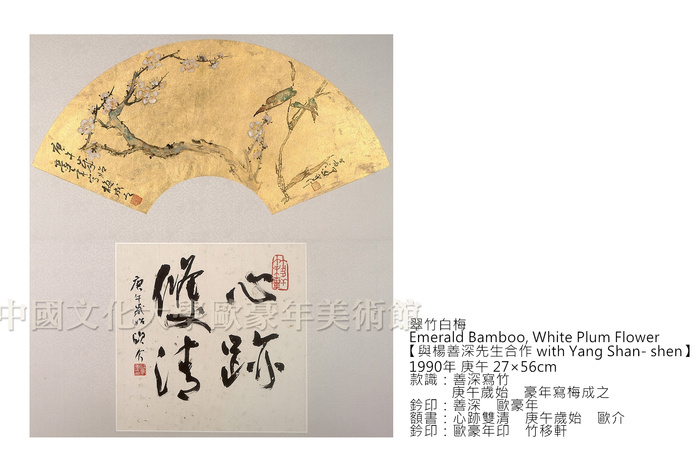 庚午歲始
豪年寫梅成之
善深寫竹
心跡
雙清
庚午歲始 歐介
中國文化大學歐豪年美術館
翠竹白梅
Emerald Bamboo, White Plum Flower
【與楊善深先生合作 with Yang Shan- shen】
1990年 庚午 27×56cm
款識：善深寫竹
庚午歲始 豪年寫梅成之
鈐印：善深 歐豪年
額書：心跡雙清 庚午歲始 歐介
鈐印：歐豪年印 竹移軒